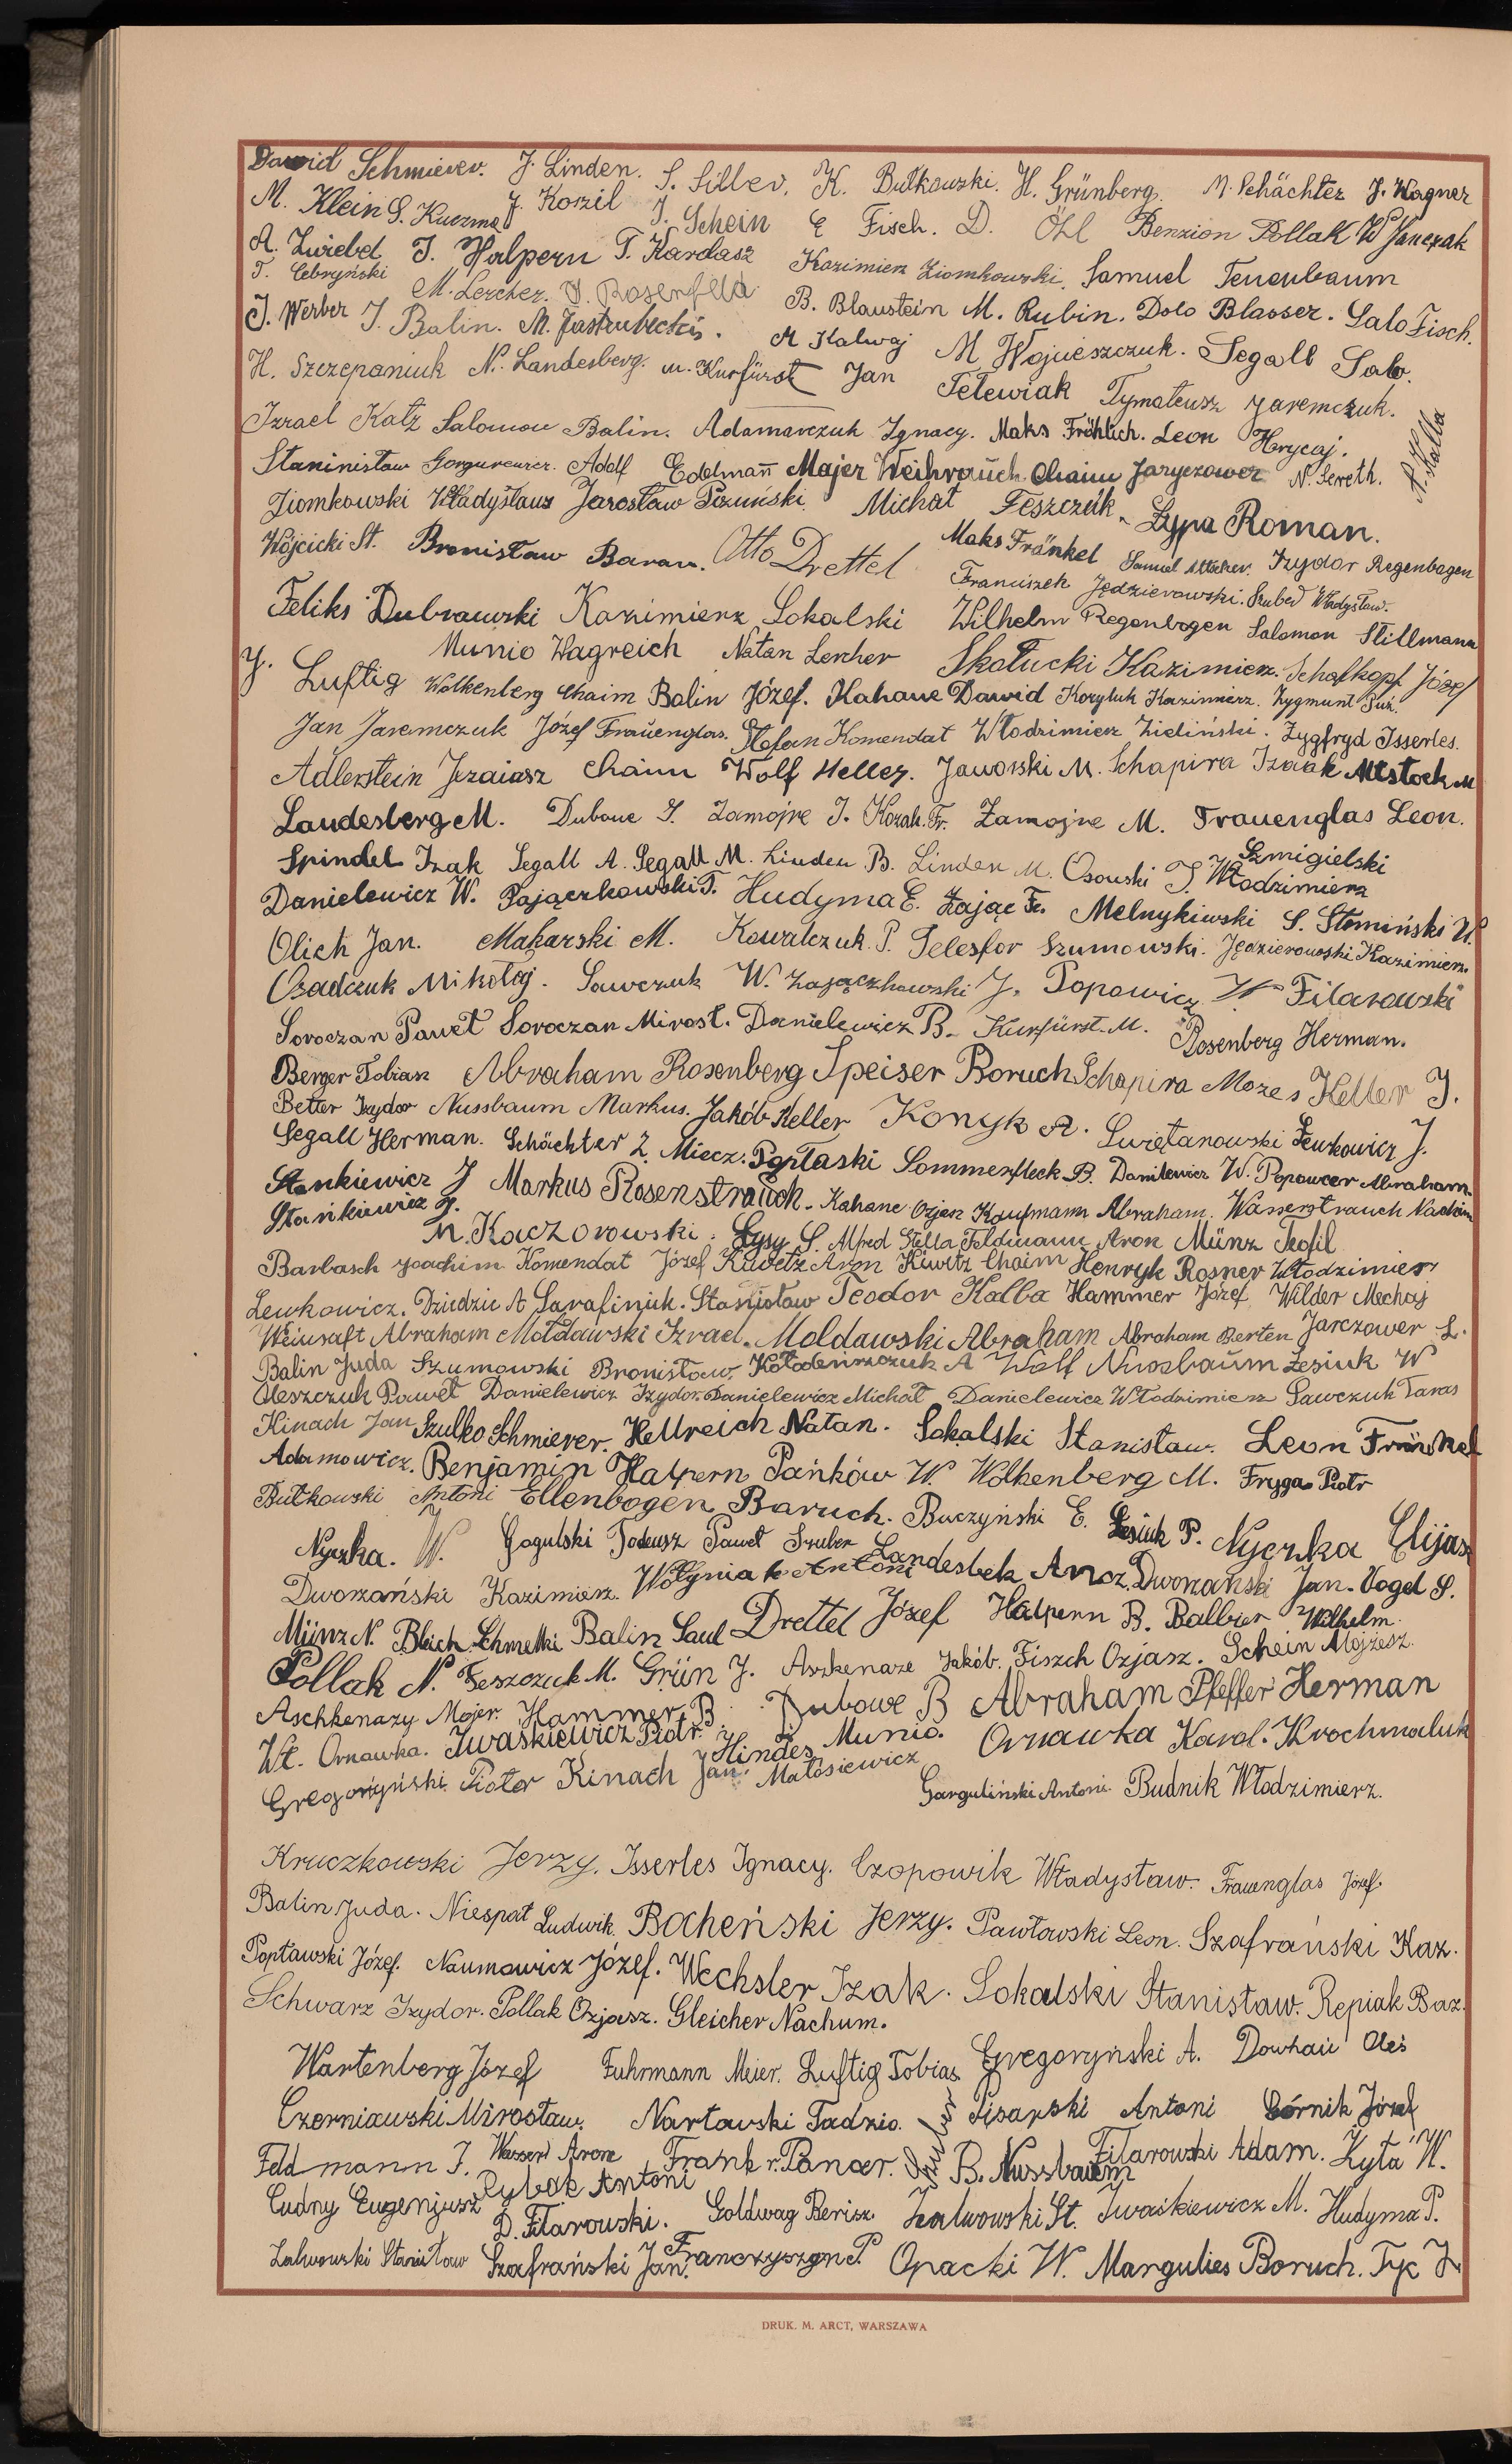 Dawid Schmierer. J. Linden. S. Siller. K. Bułkowski. H. Grünberg. M. Schächter J. Wagner
M. Klein S. Kuczma J. Koszil J. Schein E Fisch. D. Öhl Benzion Pollak W Janczak
A. Zwiebel J. Halpern T. Kardasz Kazimierz Ziomkowski. Samuel Tenenbaum
T. Cebryński M. Lercher. J. Rosenfeld B. Blaustein M. Rubin. Dolo Blasser. Salo Fisch.
J. Werber J. Balin. M. Jastrubecki. M Kalwaj M Wojcieszczuk. Segall Salo.
H. Szczepaniuk N. Landesberg. M. Kurfürst Jan Telewiak Tymateusz Jaremczuk.
Izrael Katz Salomon Balin. Adamarczuk Ignacy. Maks Fröhlich. Leon Hrycaj. A. Kalba
Adolf Edelmann Majer Weihrauch Chaim Jaryczower N. Sereth.
Ziomkowski Władysław Jarosław Michał Feszczuk. Łypa Roman.
Wójcicki St. Bronisław Baran. Otto Drettel Maks Fränkel Samuel Izydor Regenbogen
Franciszek Jędzierowski. Szuber Władysław.
Feliks Dubrawski Kazimierz Sokalski Wilhelm Regenbogen Salomon Stillmann
Munio Wagreich Natan Lercher Skałucki Kazimierz. Schafkopf Józef
J. Luftig Wolkenberg Chaim Balin Józef. Kahane Dawid Korzyluk Kazimierz. Zygmunt Suz.
Jan Jaremczuk Józef Frauenglas. Stefan Komendat Włodzimierz Zieliński. Zygfryd Isserles.
Adlerstein Jezaiasz Chaim Wolf Heller. Jaworski M. Schapira Izaak Altstock M
Landesberg M. Dubowe J. Zamojre J. Kozak Fr. Zamojre M. Frauenglas Leon.
Spindel Izak Segall A. Segall M. Linden B. Linden M. Osowski J. Szmigielski Włodzimierz
Danielewicz W. Pajączkowski T. Hudyma E. Zając Fr. Melnykiwski S. Słomiński W.
Olich Jan. Makarski M. Kowalczuk. P. Telesfor Szumowski. Jędzierowski Kazimierz.
Osadczuk Mikołaj. Sawczuk W. Zajączkowski J. Popowicz W Filarowski
Soroczan Paweł Soroczan Mirosł. Danielewicz B. Kurfürst M. Rosenberg Herman.
Berger Tobiasz Abraham Rosenberg Speiser Boruch Schapira Mozes Keller J.
Better Izydor Nussbaum Markus. Jakób Keller Konyk A. Świętanowski Lewkowicz J.
Segall Herman. Schächter Z. Miecz. Popłaski Sommerfleck B. Danilewicz W. Popowcer Abraham.
Stankiewicz J Markus Rosenstrauch. Kahane Ozjasz Kaufmann Abraham. Wasserstrauch Nachim
Stańkiewicz J. M. Kaczorowski. Łysy S. Alfred Stella Feldmann Aron Münz Teofil
Barbasch Joachim Komendat Józef Kiwetz Aron Kiwetz Chaim Henryk Rosner Włodzimierz
Lewkowicz. Dziedzic A Sarafiniuk. Stanisław Teodor Kalba Hammer Józef Wilder Mechaj
Weinsaft Abraham Mołdawski Izrael. Mołdawski Abraham Abraham Berten Jarczower L.
Balin Juda Szumowski Bronisław. Kołodeńszczuk A Wolf Nussbaum Lesiuk W
Oleszczuk Paweł Danielewicz Izydor. Danielewicz Michał Danielewicz Włodzimierz Sawczuk Taras
Kinach Jan Szulko Schmierer. Hellreich Natan. Sokalski Stanisław. Leon Fränkel
Adamowicz. Benjamin Halpern Pańków W Wolkenberg M. Fryga Piotr
Bułkowski Antoni Ellenbogen Baruch. Buczyński E. Lesiuk P. Nyczka Elijasz
Nyczka. W. Gogulski Tadeusz Paweł Szuber Landesbek Ancz.
Dworzański Kazimierz. Wołyniak Antoni Dworzański Jan. Vogel S.
Münz N. Bleich Schmelki Balin Saul Drettel Józef Halpern B. Balbier Wilhelm.
Pollak N. Feszczuk M. Grün J. Aszkenaze Jakób. Fiszch Ozjasz. Schein Mojżesz.
Aschkenazy Majer. Hammer B. Dubowe B Abraham Pfeffer Herman
Wł. Ornawka. Iwaśkiewicz Piotr. Hindes Munio. Ornawka Karol. Krochmaluk
Gregoryński Piotr Kinach Jan. Matosiewicz Garguliński Antoni. Budnik Włodzimierz.
Kruczkowski Jerzy. Isserles Ignacy. Czopowik Władysław. Frauenglas Józef.
Balin Juda. Niespał Ludwik. Bocheński Jerzy. Pawłowski Leon. Szafrański Kaz.
Popławski Józef. Naumowicz Józef. Wechsler Izak. Sokalski Stanisław. Repiak Baz.
Schwarz Izydor. Pollak Ozjasz. Gleicher Nachum.
Wartenberg Józef Fuhrmann Meier. Luftig Tobiasz Gregoryński A. Dowhań Oleś
Czerniawski Mirosław. Nartowski Tadzio. Szuber Pisarski Antoni Górnik Józef
Feldmann J. Wasser Aron Frank r. Pancer. B. Nussbaum Filarowski Adam. Kyta W.
Cudny Eugenjusz Rybak Antoni
D. Filarowski. Goldwag Berisz. Zalwowski St. Iwaśkiewicz M. Hudyma P.
Zalwowski Stanisław Szafrański Jan. Franczyszyn P. Opacki W. Margulies Boruch. Tyc J
DRUK. M. ARCT, WARSZAWA